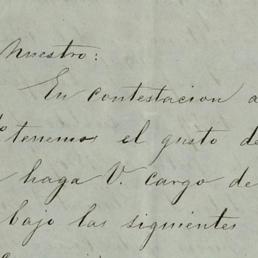 nuestro:
En contestacion a
tenemos el gusto de
haga V. cargo de
bajo las siguientes